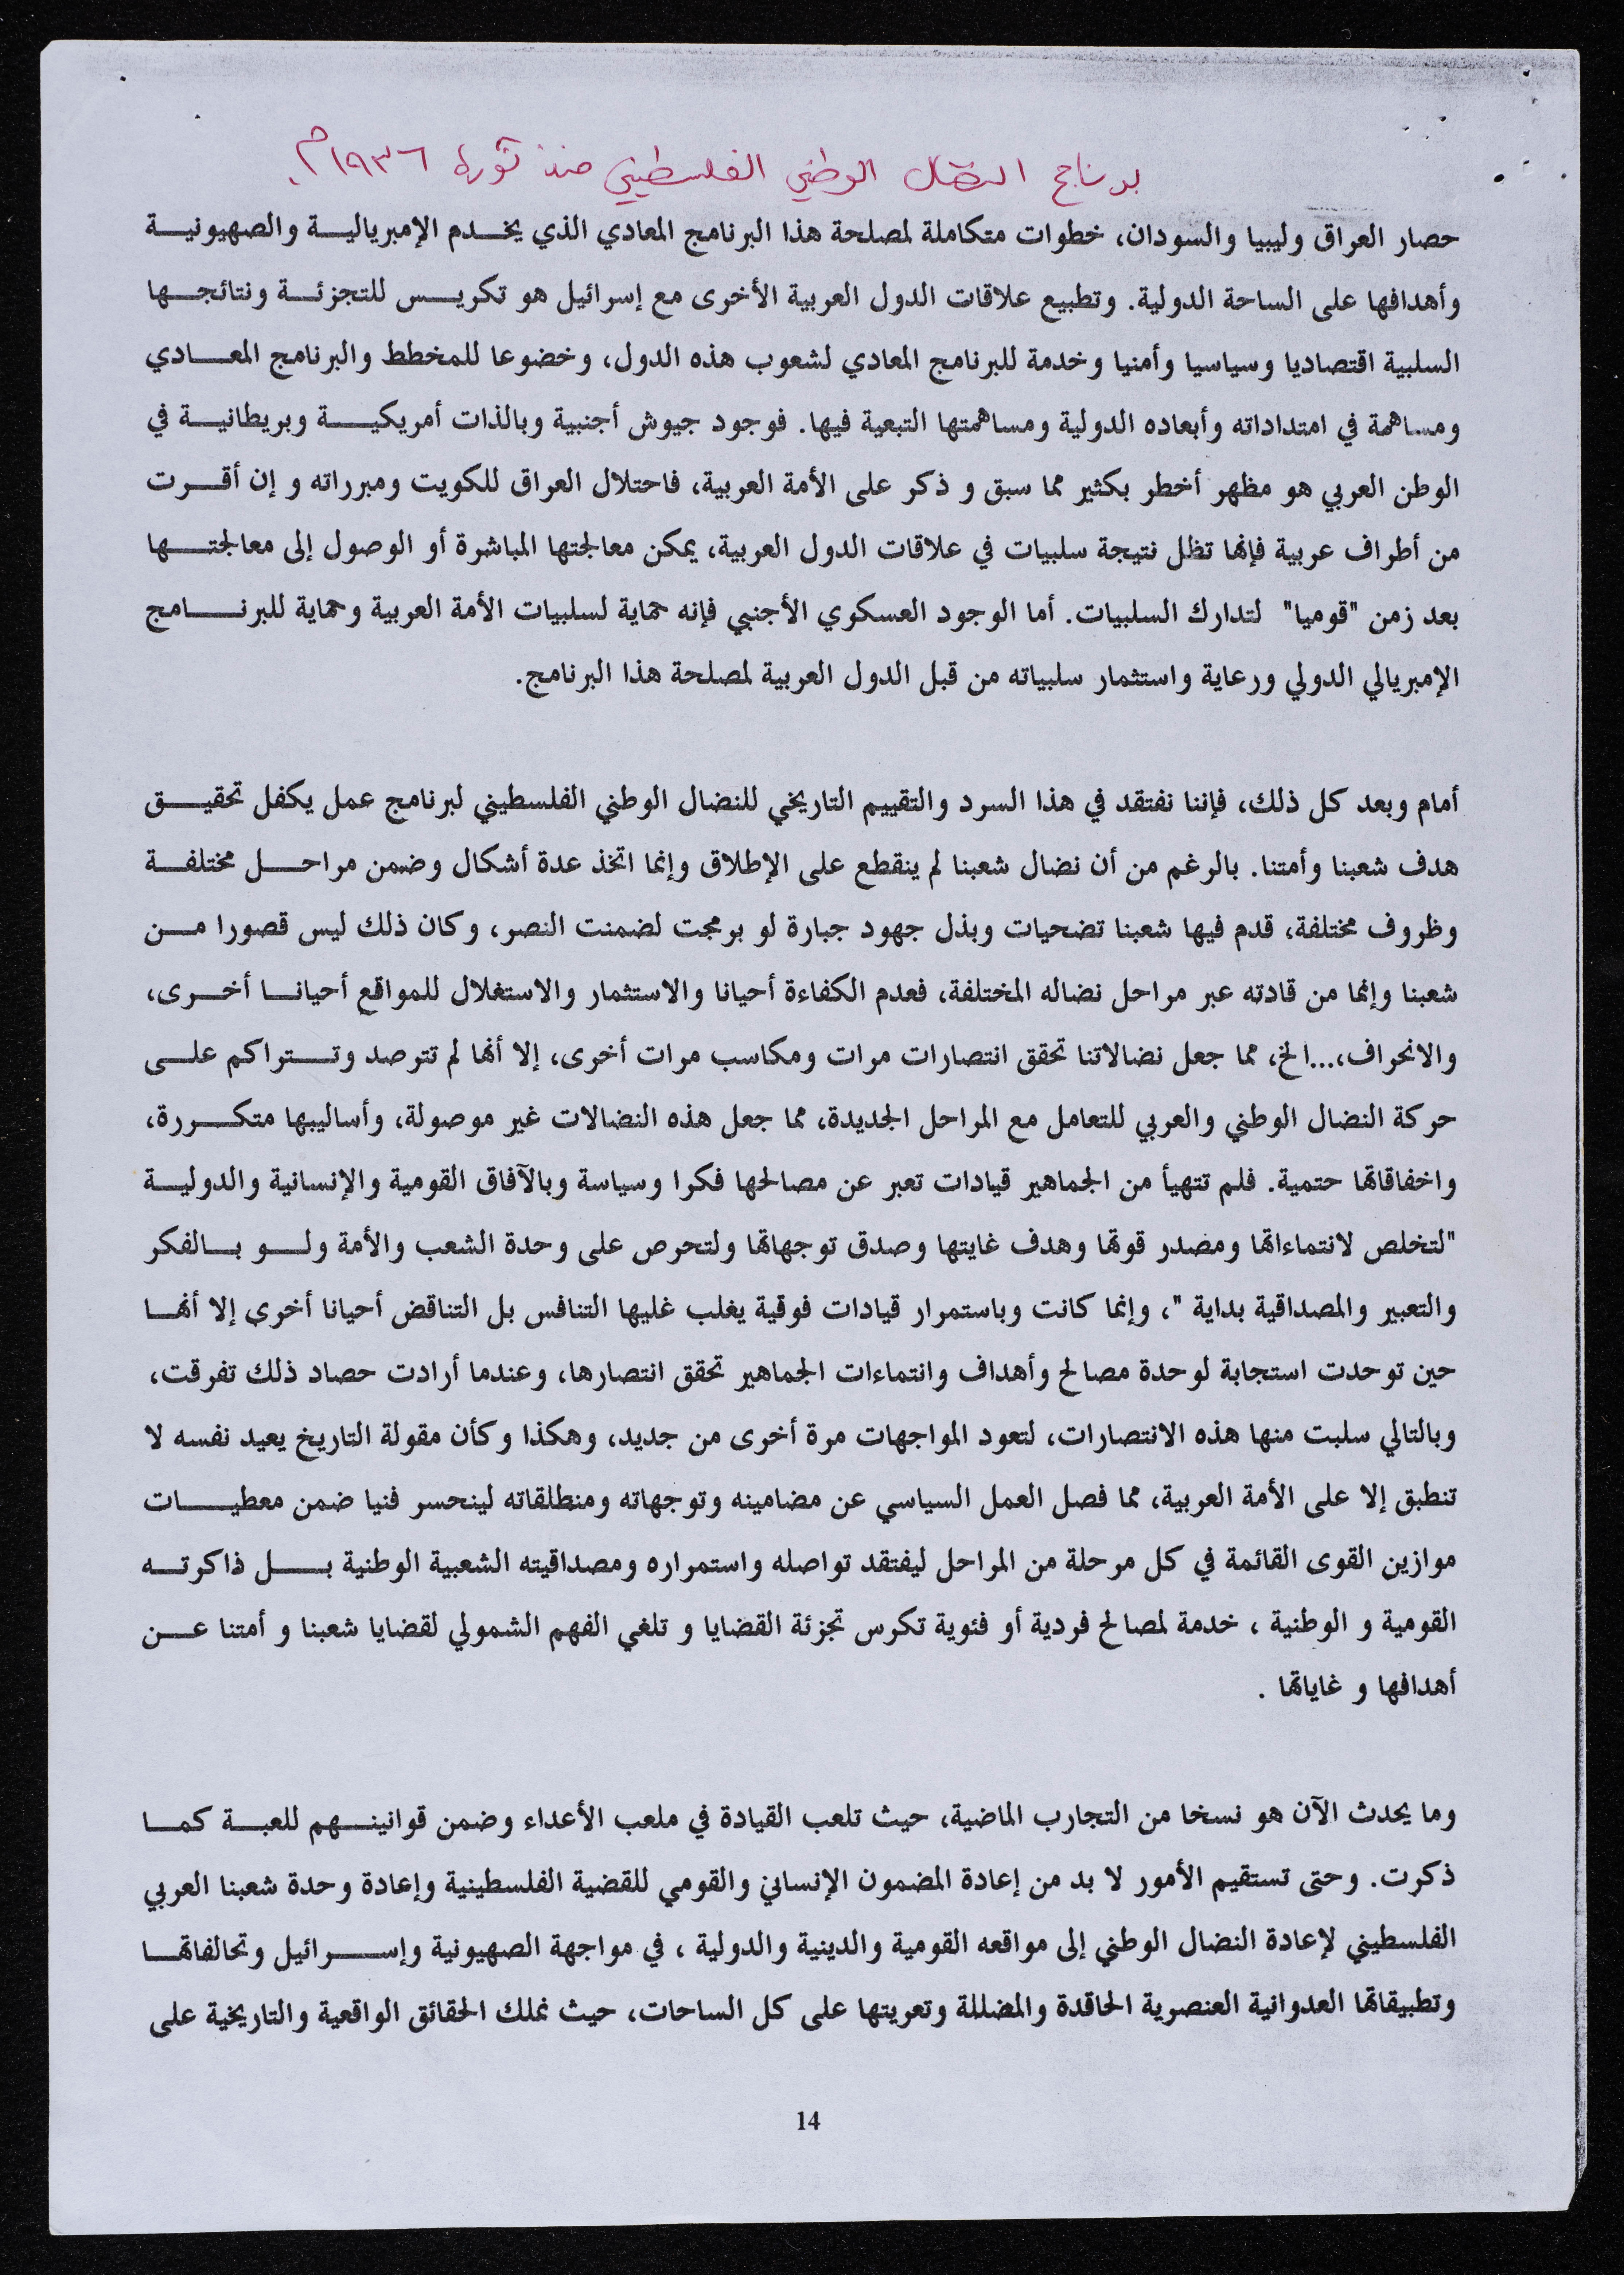 برنامج النضال الوطني الفلسطيني منذ ثورة ١٩٣٦م
حصار العراق وليبيا والسودان، خطوات متكاملة لمصلحة هذا البرنامج المعادي الذي يخدم الإمبريالية والصهيونية
وأهدافها على الساحة الدولية. وتطبيع علاقات الدول العربية الأخرى مع إسرائيل هو تكريس للتجزئة ونتائجها
السلبية اقتصاديا وسياسيا وأمنيا وخدمة للبرنامج المعادي لشعوب هذه الدول، وخضوعا للمخطط والبرنامج المعادي
ومساهمة في امتداداته وأبعاده الدولية ومساهمتها التبعية فيها. فوجود جيوش أجنبية وبالذات أمريكية وبريطانية في
الوطن العربي هو مظهر أخطر بكثير مما سبق و ذكر على الأمة العربية، فاحتلال العراق للكويت ومبرراته و إن أقرت
من أطراف عربية فإنها تظل نتيجة سلبيات في علاقات الدول العربية، يمكن معالجتها المباشرة أو الوصول إلى معالجتها
بعد زمن "قوميا" لتدارك السلبيات. أما الوجود العسكوي الأجنبي فإنه حماية لسلبيات الأمة العربية وحماية للبرنامج
الإمبريالي الدولي ورعاية واستثمار سلبياته من قبل الدول العربية لمصلحة هذا البرنامج.
أمام وبعد كل ذلك، فإننا نفتقد في هذا السرد والتقييم التاريخي للنضال الوطني الفلسطيني لبرنامج عمل يكفل تحقيق
هدف شعبنا وأمتنا. بالرغم من أن نضال شعبنا لم ينقطع على الإطلاق وإنما اتخذ عدة أشكال وضمن مراحل مختلفة
وظروف مختلفة، قدم فيها شعبنا تضحيات وبذل جهود جبارة لو برمجت لضمنت النصر، وكان ذلك ليس قصورا من
شعبنا وإنما من قادته عبر مراحل نضاله المختلفة، فعدم الكفاءة أحيانا والاستثمار والاستغلال للمواقع أحيانا أخرى،
والانحراف،...الخ، مما جعل نضالاتنا تحقق انتصارات مرات ومكاسب مرات أخرى، إلا أنها لم تترصد وتتراكم على
حركة النضال الوطني والعربي للتعامل مع المراحل الجديدة، مما جعل هذه النضالات غير موصولة، وأساليبها متكررة،
واخفاقاتها حتمية. فلم تتهيأ من الجماهير قيادات تعبر عن مصالحها فكرا وسياسة وبالآفاق القومية والإنسانية والدولية
"لتخلص لانتماءاتها ومصدر قوتها وهدف غايتها وصدق توجهاتها ولتحرص على وحدة الشعب والأمة ولو بالفكر
والتعبير والمصداقية بداية "، وإنما كانت وباستمرار قيادات فوقية يغلب غليها التنافس بل التناقض أحيانا أخرى إلا أنها
حين توحدت استجابة لوحدة مصالح وأهداف وانتماءات الجماهير تحقق انتصارها، وعندما أرادت حصاد ذلك تفرقت،
وبالتالي سلبت منها هذه الانتصارات، لتعود المواجهات مرة أخرى من جديد، وهكذا وكأن مقولة التاريخ يعيد نفسه لا
تنطبق إلا على الأمة العربية، مما فصل العمل السياسي عن مضامينه وتوجهاته ومنطلقاته لينحسر فنيا ضمن معطيات
موازين القوى القائمة في كل مرحلة من المراحل ليفتقد تواصله واستمراره ومصداقيته الشعبية الوطنية بل ذاكرته
القومية و الوطنية ، خدمة لمصالح فردية أو فئوية تكرس تجزئة القضايا و تلغي الفهم الشمولي لقضايا شعبنا و أمتنا عن
أهدافها و غاياتها .
وما يحدث الآن هو نسخا من التجارب الماضية، حيث تلعب القيادة في ملعب الأعداء وضمن قوانينهم للعبة كما
ذكرت. وحتى تستقيم الأمور لا بد من إعادة المضمون الإنساني والقومي للقضية الفلسطينية وإعادة وحدة شعبنا العربي
الفلسطيني لإعادة النضال الوطني إلى مواقعه القومية والدينية والدولية ، في مواجهة الصهيونية وإسرائيل وتحالفاتها
وتطبيقاتها العدوانية العنصرية الحاقدة والمضللة وتعريتها على كل الساحات، حيث نملك الحقائق الواقعية والتاريخية على
14